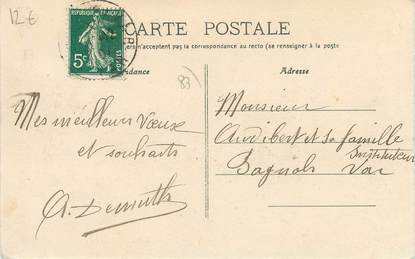 12 €
CARTE POSTALE
ers n'acceptent pas la correspondance au recto (se renseigner à la poste
ndance
Adresse
REPUBLIQUE FRANÇAISE
5c
POSTES
83
Mes meilleurs Vœux
et souhaits
A. Demuth
Monsieur
Audibert et sa famille
Instituteur
Bagnols Var